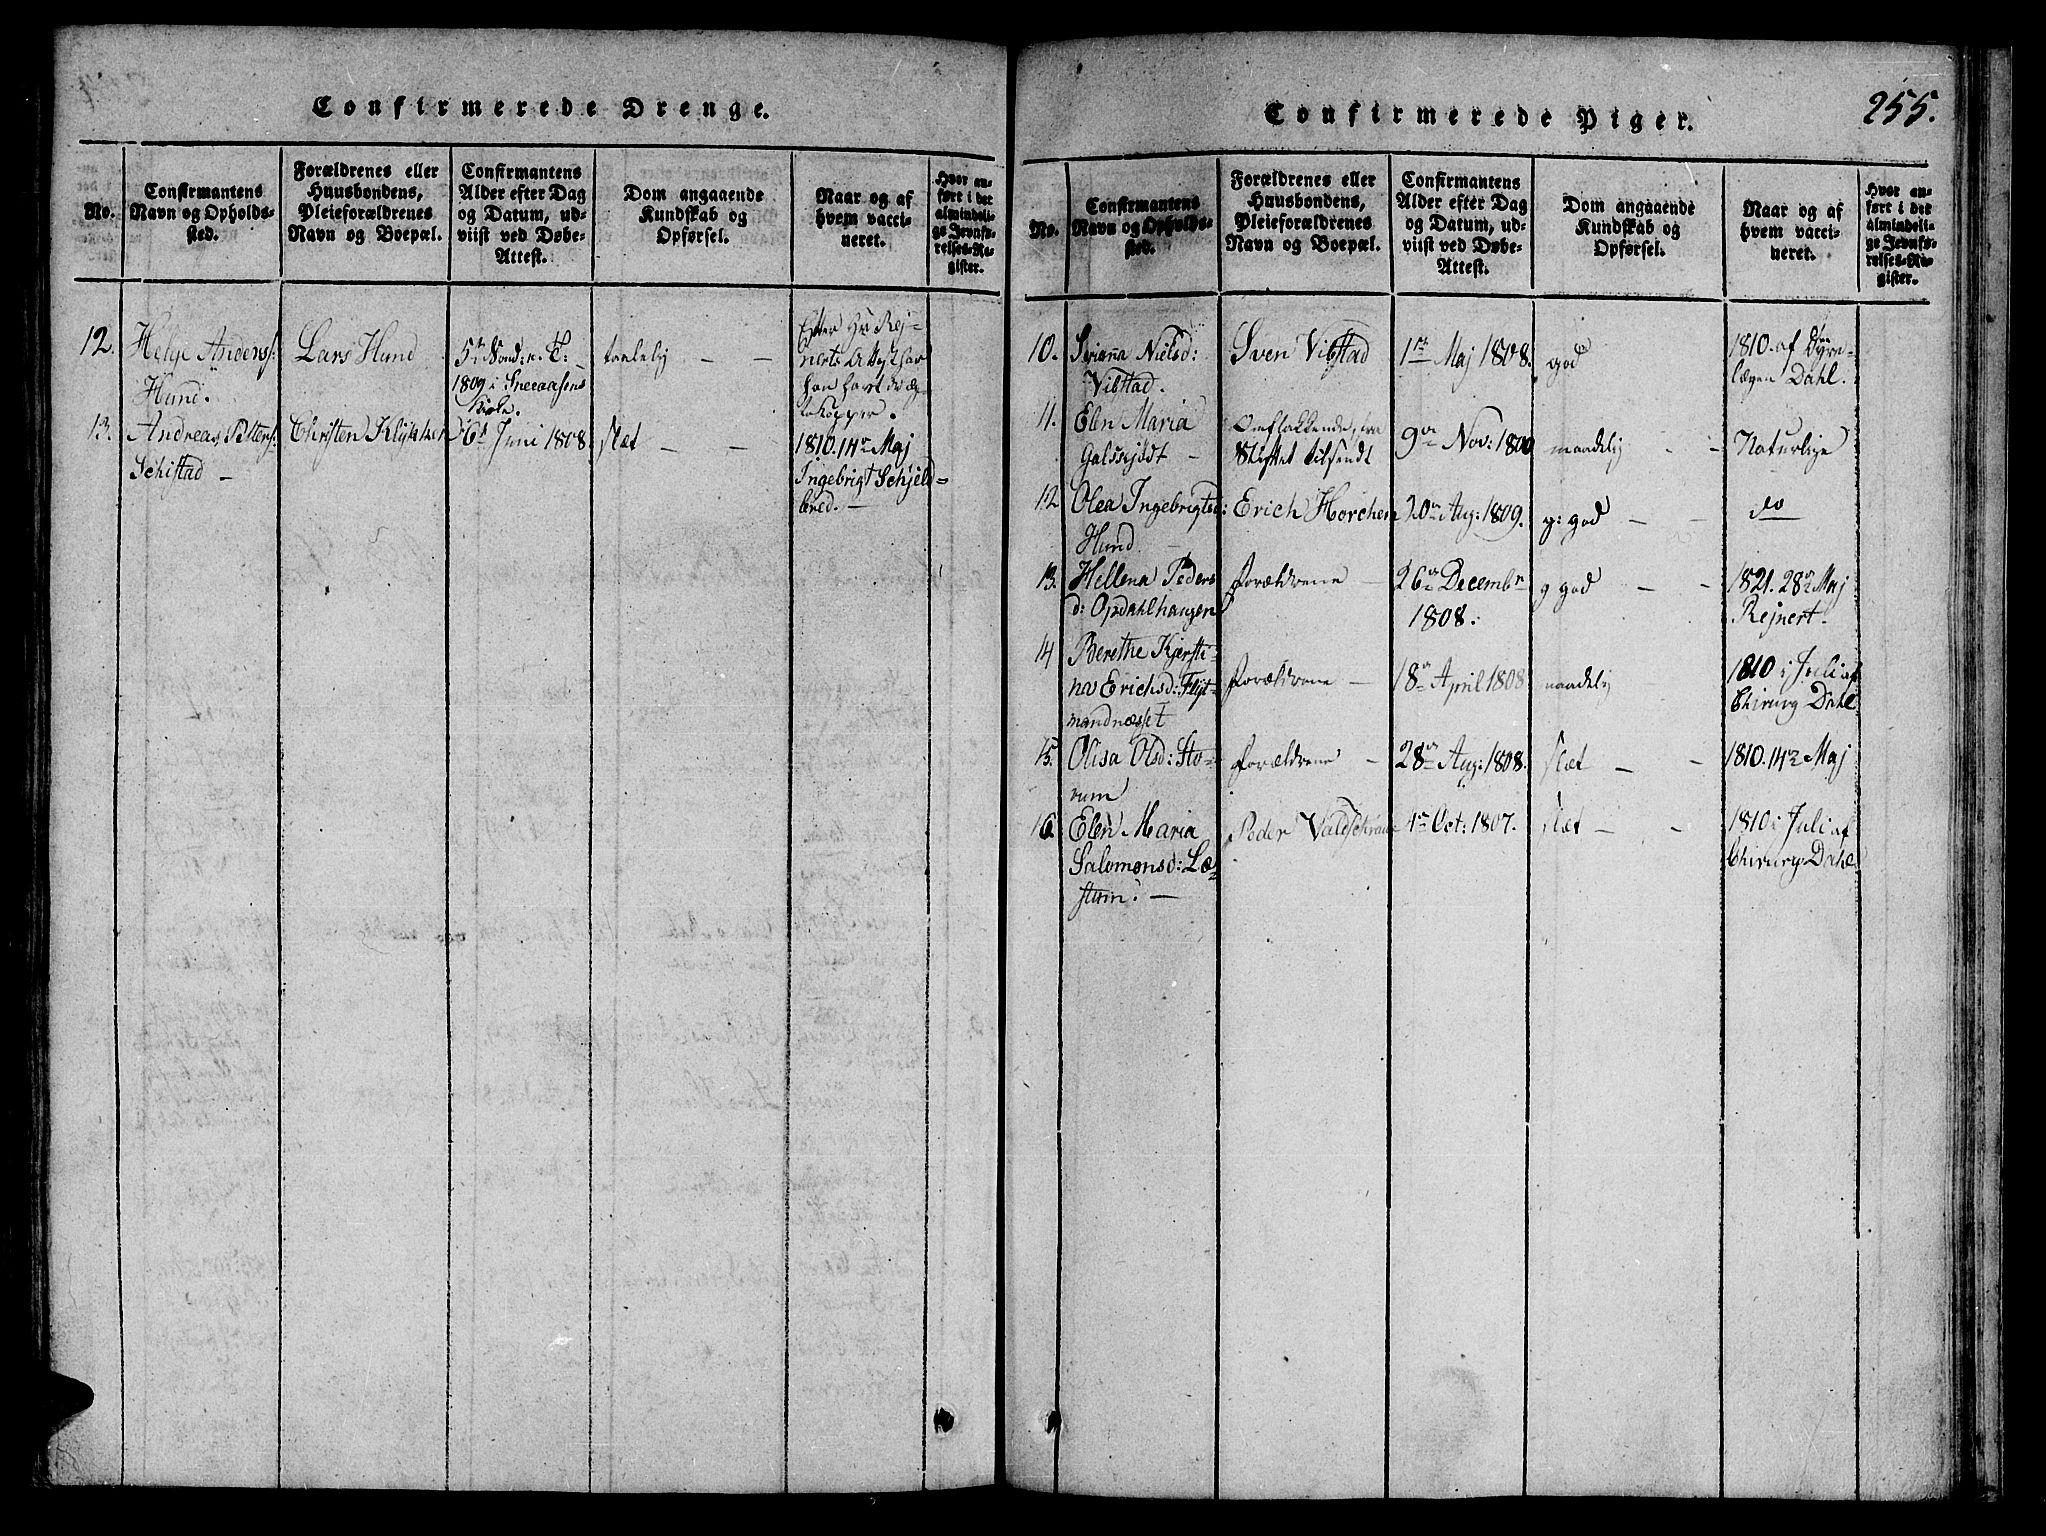 Confirmerede Drenge.
No.
Confirmantens
Navn og Opholds-
sted.
Forældrenes eller
Huusbondens,
Pleieforældrenes
Navn og Boepæl.
Confirmantens
Alder efter Dag
og Datum, ud-
viist ved Døbe-
Attest.
Dom angaaende
Kundskab og
Opførsel.
Naar og af
hvem vacci-
neret.
Hvor an-
ført i det
almindeli-
ge Jevnfø-
relses-Re-
gister.
12.
Helge Anderss:
Hund.
Lars Hund
1809 i Sneeaasens
Kirke.
taalelig — —
Efter Hr Rej-
nerts Attest har
han havt
kopper.
13.
Andreas Petters:
Schistad —
Christen
6te Juni 1808.
slæt — —
1810. 14de Maj
Ingebrigt Schjeld-
bred. —
Confirmerede Piger.
255.
No.
Confirmantens
Navn og Opholds-
sted.
Forældrenes eller
Huusbondens,
Pleieforældrenes
Navn og Boepæl.
Confirmantens
Alder efter Dag
og Datum, ud-
viist ved Døbe-
Attest.
Dom angaaende
Kundskab og
Opførsel.
Naar og af
hvem vacci-
neret.
Hvor an-
ført i det
almindeli-
ge Jevnfø-
relses-Re-
gister.
10.
Nielsd:
Vibstad.
Sven Vibstad
1ste Maj 1808.
god
1810. af Dyre-
lægen Dahl.
11.
Elen Maria
Omflakkende, fra
Stiftet tilsendt
9de Nov: 1800
maadelig - -
Naturlige
12
Olea Ingebrigtsd:
Hund
Erich Horchem
20de Aug: 1809.
g: god — —
do
13.
Hellena Peders
d: Opdahlhaugen
Forældrene —
26de Decembr
1808.
g god — —
1821. 28de Maj
Rejnert.
14
Berethe Kjersti-
na Erichsd: Flyt-
mandnæsset
Forældrene —
18de April 1808
maadelig
1810 i Juli af
Chirurg Dahl
15.
Olisa Olsd: Sto-
rum
Forældrene —
28de Aug: 1808.
slæt — —
1810. 14de Maj
16.
Elen Maria
Salomonsd: Læ-
strin. —
Peder
4de Oct: 1807.
slæt — -
1810 i Juli af
Chirurg Dahl